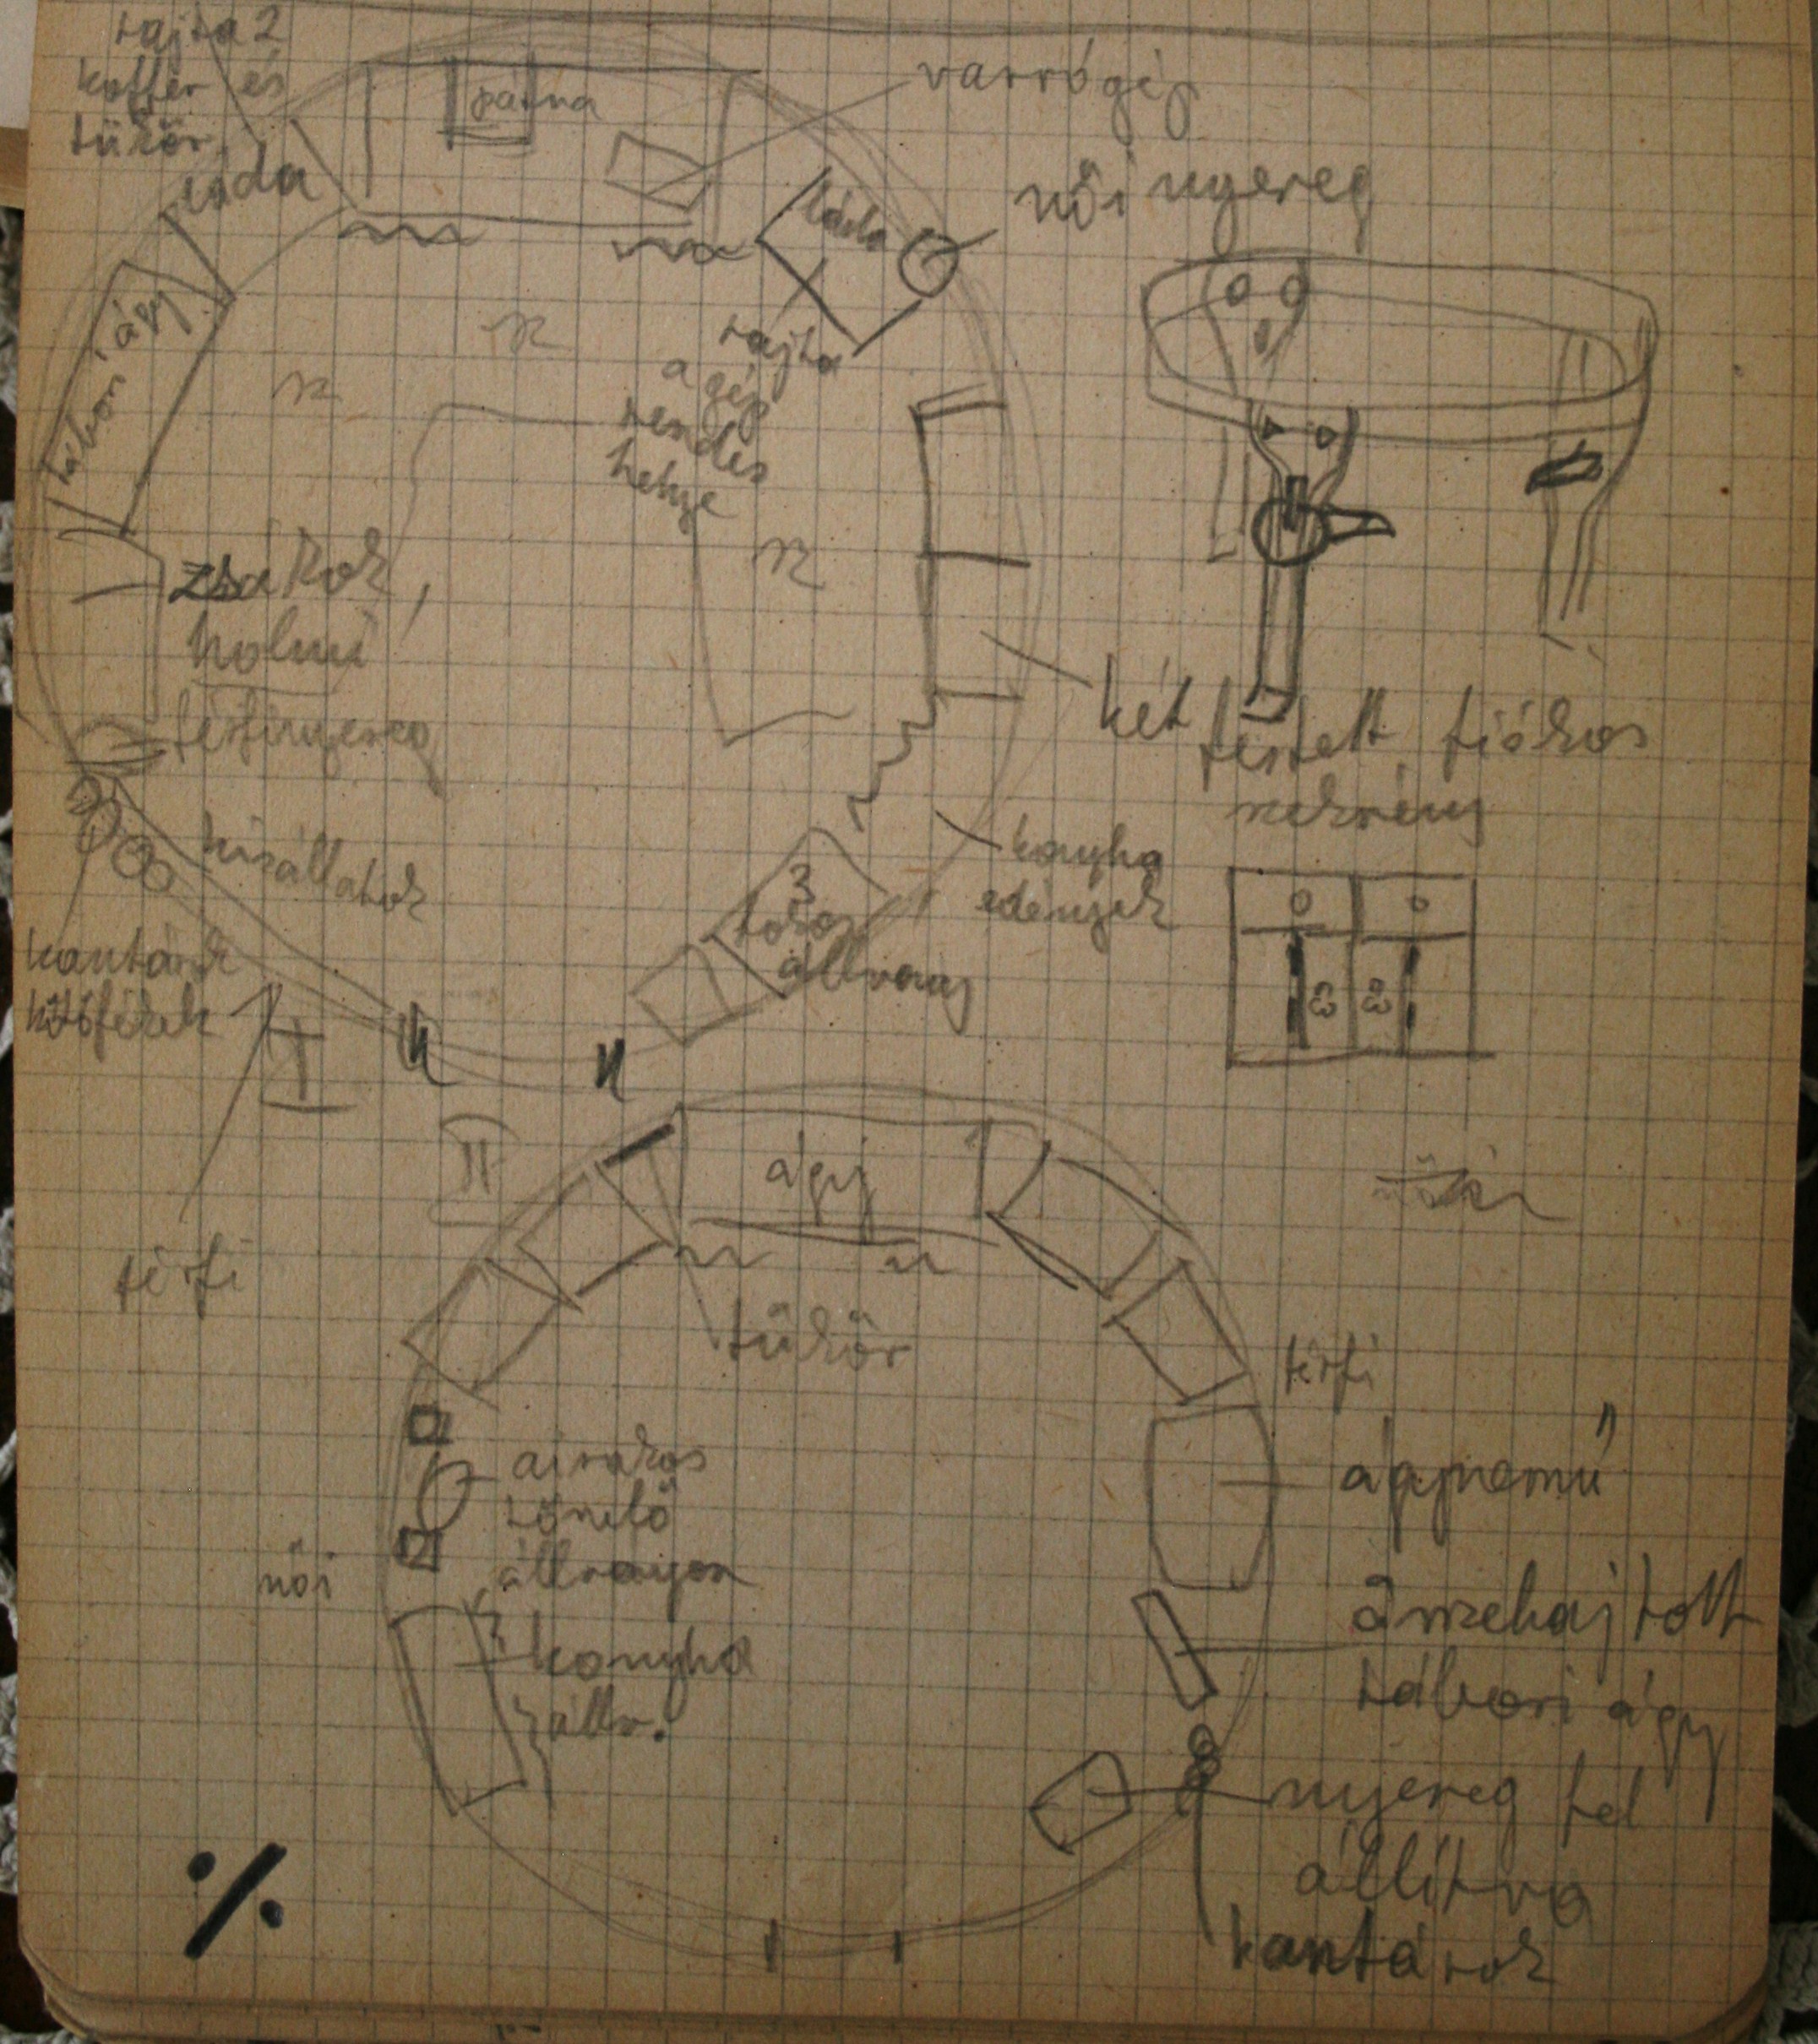 rajta 2
koffer és
tükör
láda
párna
varrógép
női nyereg
láda
tábori ágy
rajta
a gép
rendes
helye
zsákok,
holmi
férfinyereg
két festett fiókos
szekrény
kisállatok
konyha
edények
3
fokos
állvány
kantárok
kötőfékek
I
II
ágy
férfi
tükör
férfi
ágynemű
airakos
állványon
női
konyha
állv.
összehajtott
tábori ágy
nyereg fel
állítva
kantárok